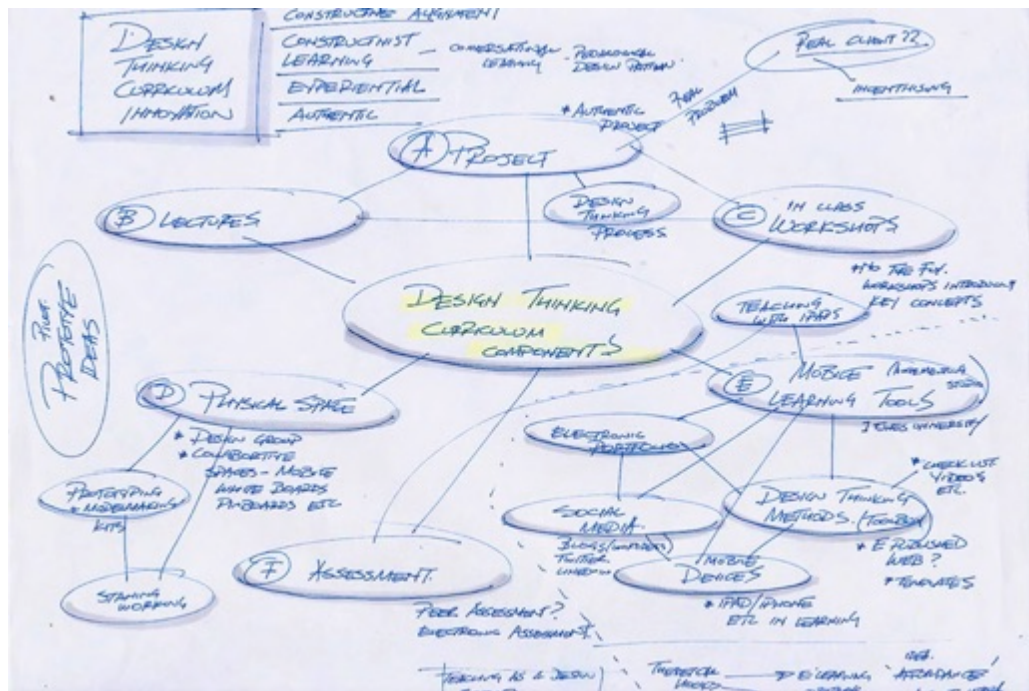 DESIGN
THINKING
CURRICULUM
INNOVATION
CONSTRUCTIVE ALIGNMENT
CONSTRUCTIVIST
LEARNING
CONVERSATIONAL
LEARNING
PEDAGOGICAL
DESIGN PATTERN
EXPERIENTIAL
AUTHENTIC
REAL CLIENT??
INCENTIVISING
REAL
PROBLEM
* AUTHENTIC
PROJECT
A PROJECT
DESIGN
THINKING
PROCESS
B LECTURES
C IN CLASS
WORKSHOPS
WORKSHOPS INTRODUCING
KEY CONCEPTS
PROTOTYPE
IDEAS
DESIGN THINKING
CURRICULUM
COMPONENTS
TEACHING
WITH IPADS
D PHYSICAL SPACE
* DESIGN GROUP
* COLLABORTIVE
SPACES - MOBILE
WHITE BOARDS
PINBOARDS ETC
PROTOTYPING
+ MODELMAKING
KITS
STANDING
WORKING
E MOBILE
LEARNING TOOLS
ITUNES UNIVERSITY
ELECTRONIC
PORTFOLIO
SOCIAL
MEDIA.
TWITTER
LINKEDIN
DESIGN THINKING
METHODS / TOOLBOX
* CHECKLIST
VIDEOS
ETC
* E PUBLISHED
WEB?
* TEMPLATES
MOBILE
DEVICES
* IPAD/IPHONE
ETC IN LEARNING
F ASSESSMENT.
PEER ASSESSMENT?
ELECTRONIC ASSESSMENT
TEACHING AS A DESIGN
THEORETICAL
E'LEARNING
AFFORDANCE